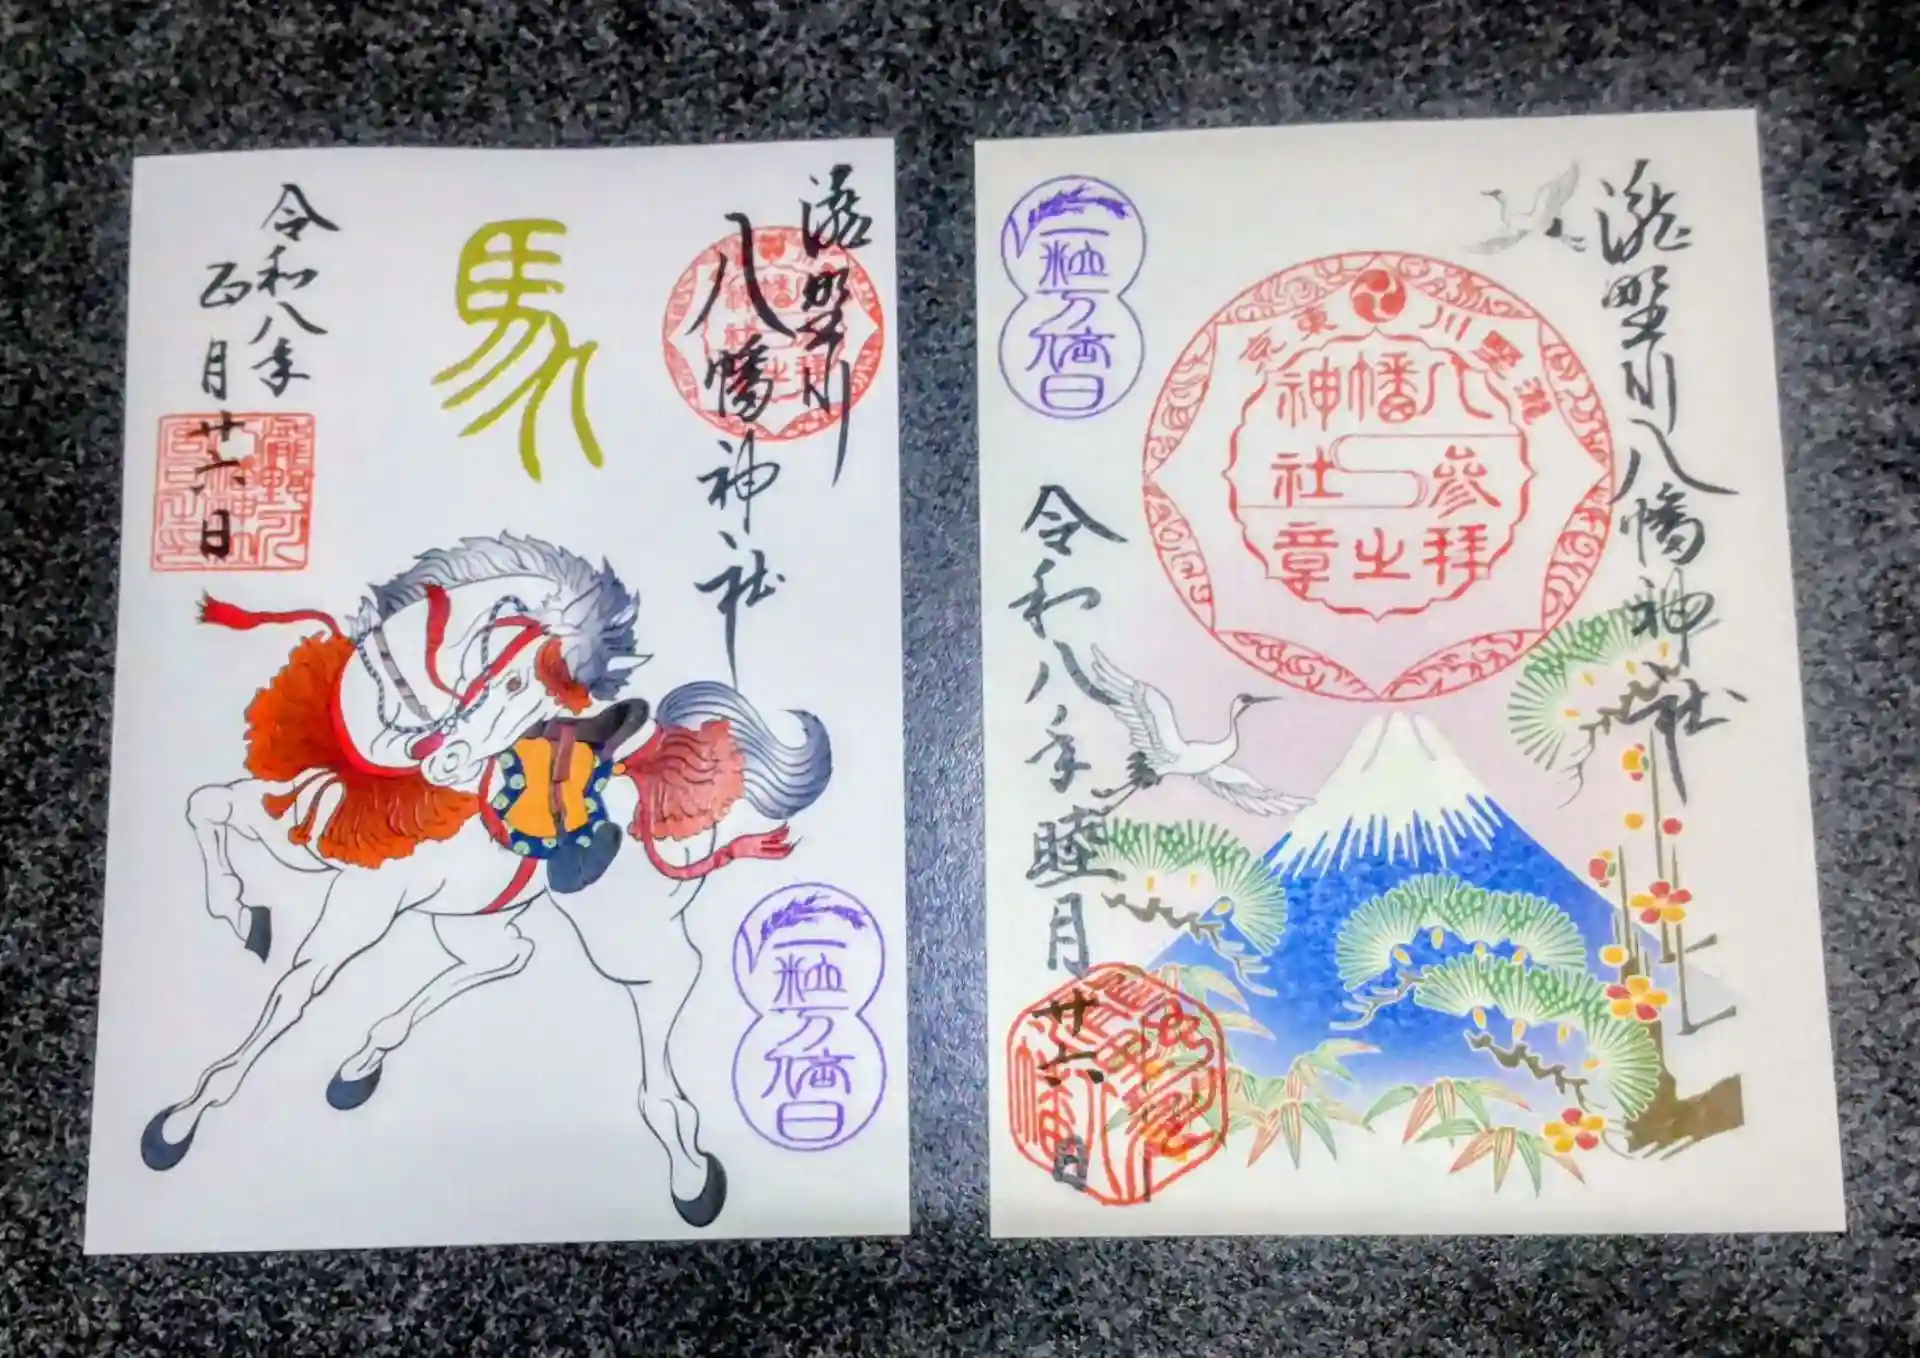 瀧野川
八幡神社
馬
令和八年
正月
廿六日
一粒万倍日
瀧野川八幡神社
東京
瀧野川
八幡神社
参拝之章
一粒万倍日
令和八年睦月
廿六日